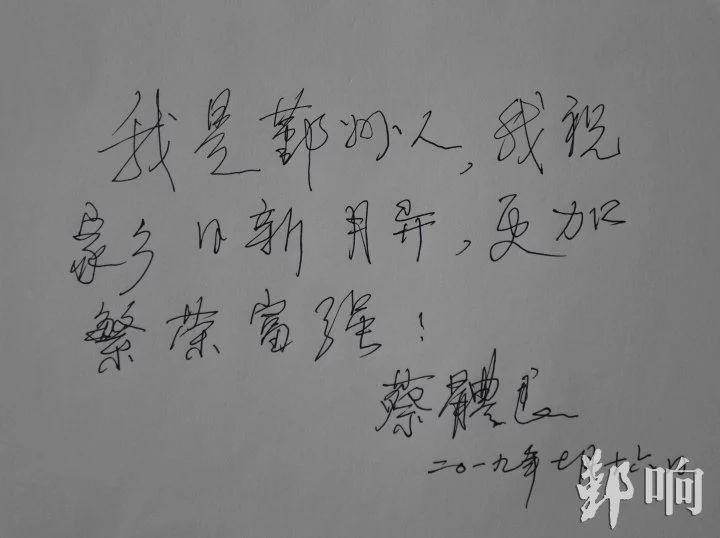 我是鄞州人,我祝
家乡日新月异,更加
繁荣富强!
蔡體良
二〇一九年七月十六日
鄞响